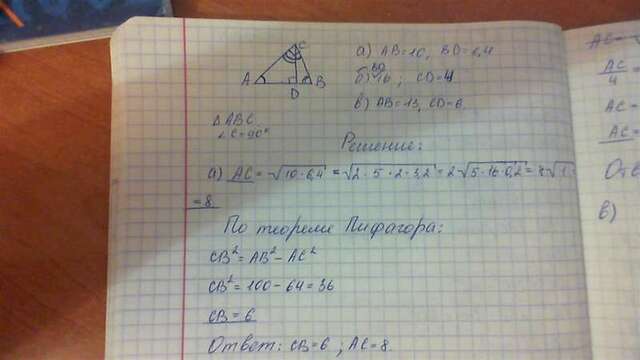 C
A
B
D
а) AB=10, BD=6,4
BD
б) 16 ; CD=4
в) AB=13, CD=6
△ABC
∠C=90°
Решение:
а) AC=√10·6,4 = √2·5·2·3,2 = 2√5·16·0,2 =
=8
По теореме Пифагора:
CB²=AB²−AC²
CB²=100−64=36
CB=6
Ответ: CB=6 ; AC=8.
AC
4
AC=
AC=
в)